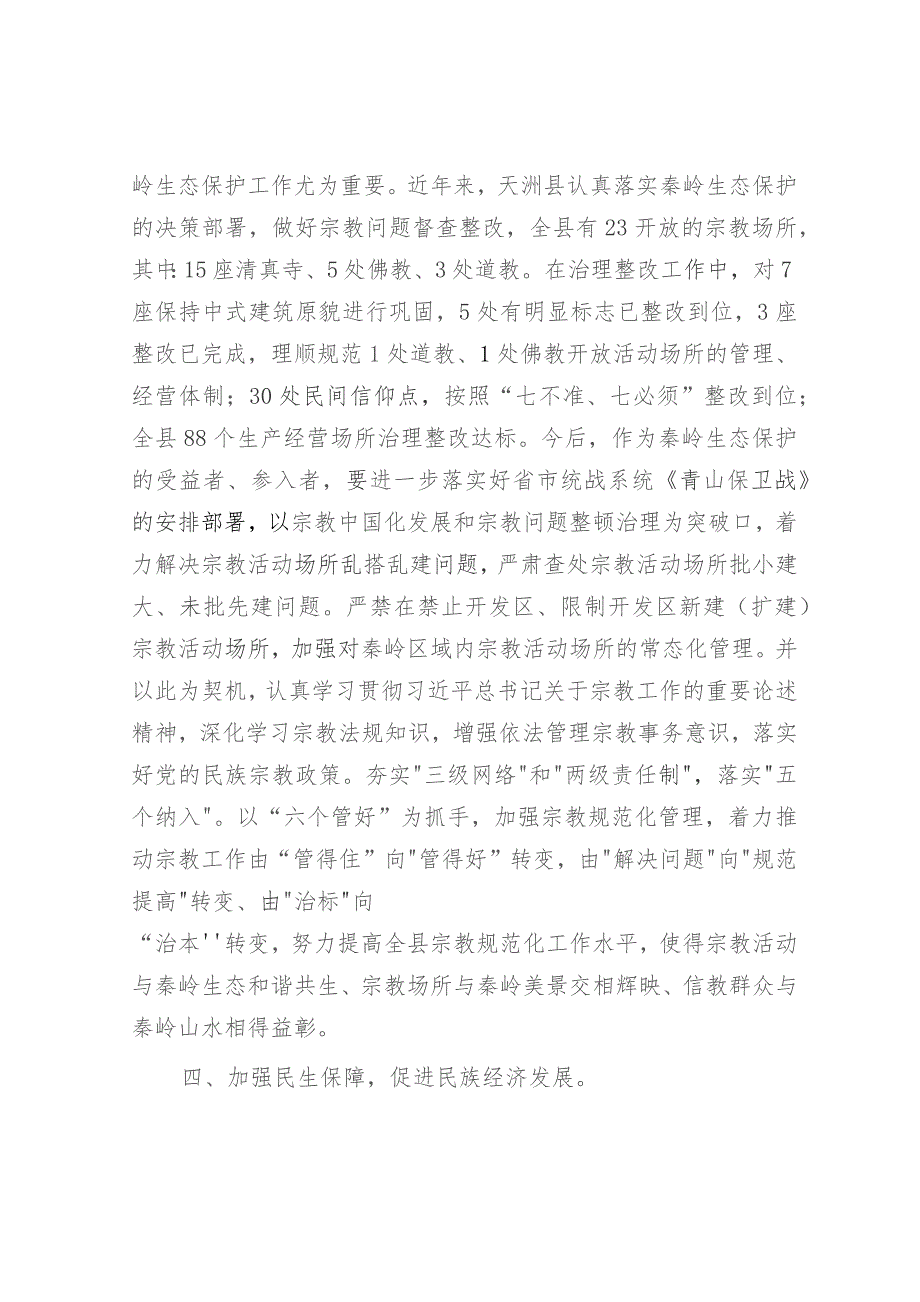 岭生态保护工作尤为重要。近年来，天洲县认真落实秦岭生态保护
的决策部署，做好宗教问题督查整改，全县有 23 开放的宗教场所，
其中：15 座清真寺、5 处佛教、3 处道教。在治理整改工作中，对 7
座保持中式建筑原貌进行巩固，5 处有明显标志已整改到位，3 座
整改已完成，理顺规范 1 处道教、1 处佛教开放活动场所的管理、
经营体制；30 处民间信仰点，按照“七不准、七必须”整改到位；
全县 88 个生产经营场所治理整改达标。今后，作为秦岭生态保护
的受益者、参入者，要进一步落实好省市统战系统《青山保卫战》
的安排部署，以宗教中国化发展和宗教问题整顿治理为突破口，着
力解决宗教活动场所乱搭乱建问题，严肃查处宗教活动场所批小建
大、未批先建问题。严禁在禁止开发区、限制开发区新建（扩建）
宗教活动场所，加强对秦岭区域内宗教活动场所的常态化管理。并
以此为契机，认真学习贯彻习近平总书记关于宗教工作的重要论述
精神，深化学习宗教法规知识，增强依法管理宗教事务意识，落实
好党的民族宗教政策。夯实"三级网络"和"两级责任制"，落实"五
个纳入"。以“六个管好”为抓手，加强宗教规范化管理，着力推
动宗教工作由“管得住”向"管得好”转变，由"解决问题"向"规范
提高"转变、由"治标"向
“治本''转变，努力提高全县宗教规范化工作水平，使得宗教活动
与秦岭生态和谐共生、宗教场所与秦岭美景交相辉映、信教群众与
秦岭山水相得益彰。
四、加强民生保障，促进民族经济发展。